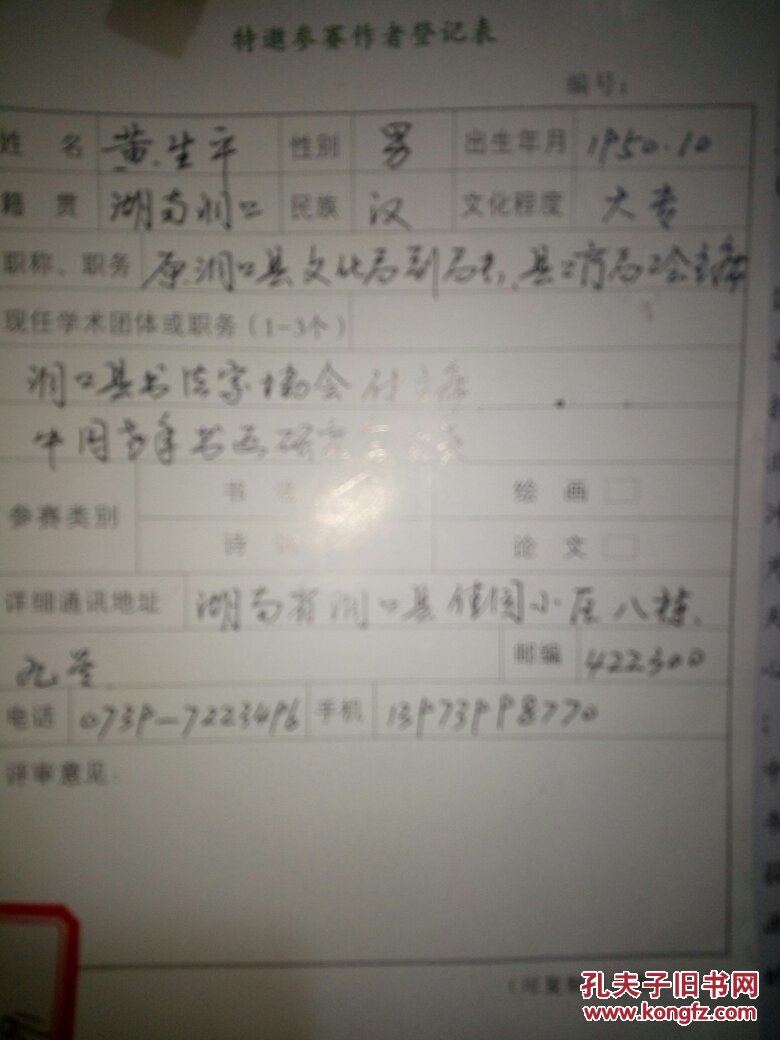 特邀参赛作者登记表
编号：
姓 名 黄生平 性别 男 出生年月 1950.10
籍 贯 湖南洞口 民族 汉 文化程度 大专
职称、职务 原洞口县文化局副局长、县文广局工会主席
现任学术团体或职务（1-3个）
洞口县书法家协会 主席
中国老年书画研究
参赛类别 书 绘 画
诗 论 文
详细通讯地址 湖南省洞口县佳园小区八栋、
九号 邮编 422300
电话 0739-7223496 手机 13973998770
评审意见：
孔夫子旧书网
www.kongfz.com